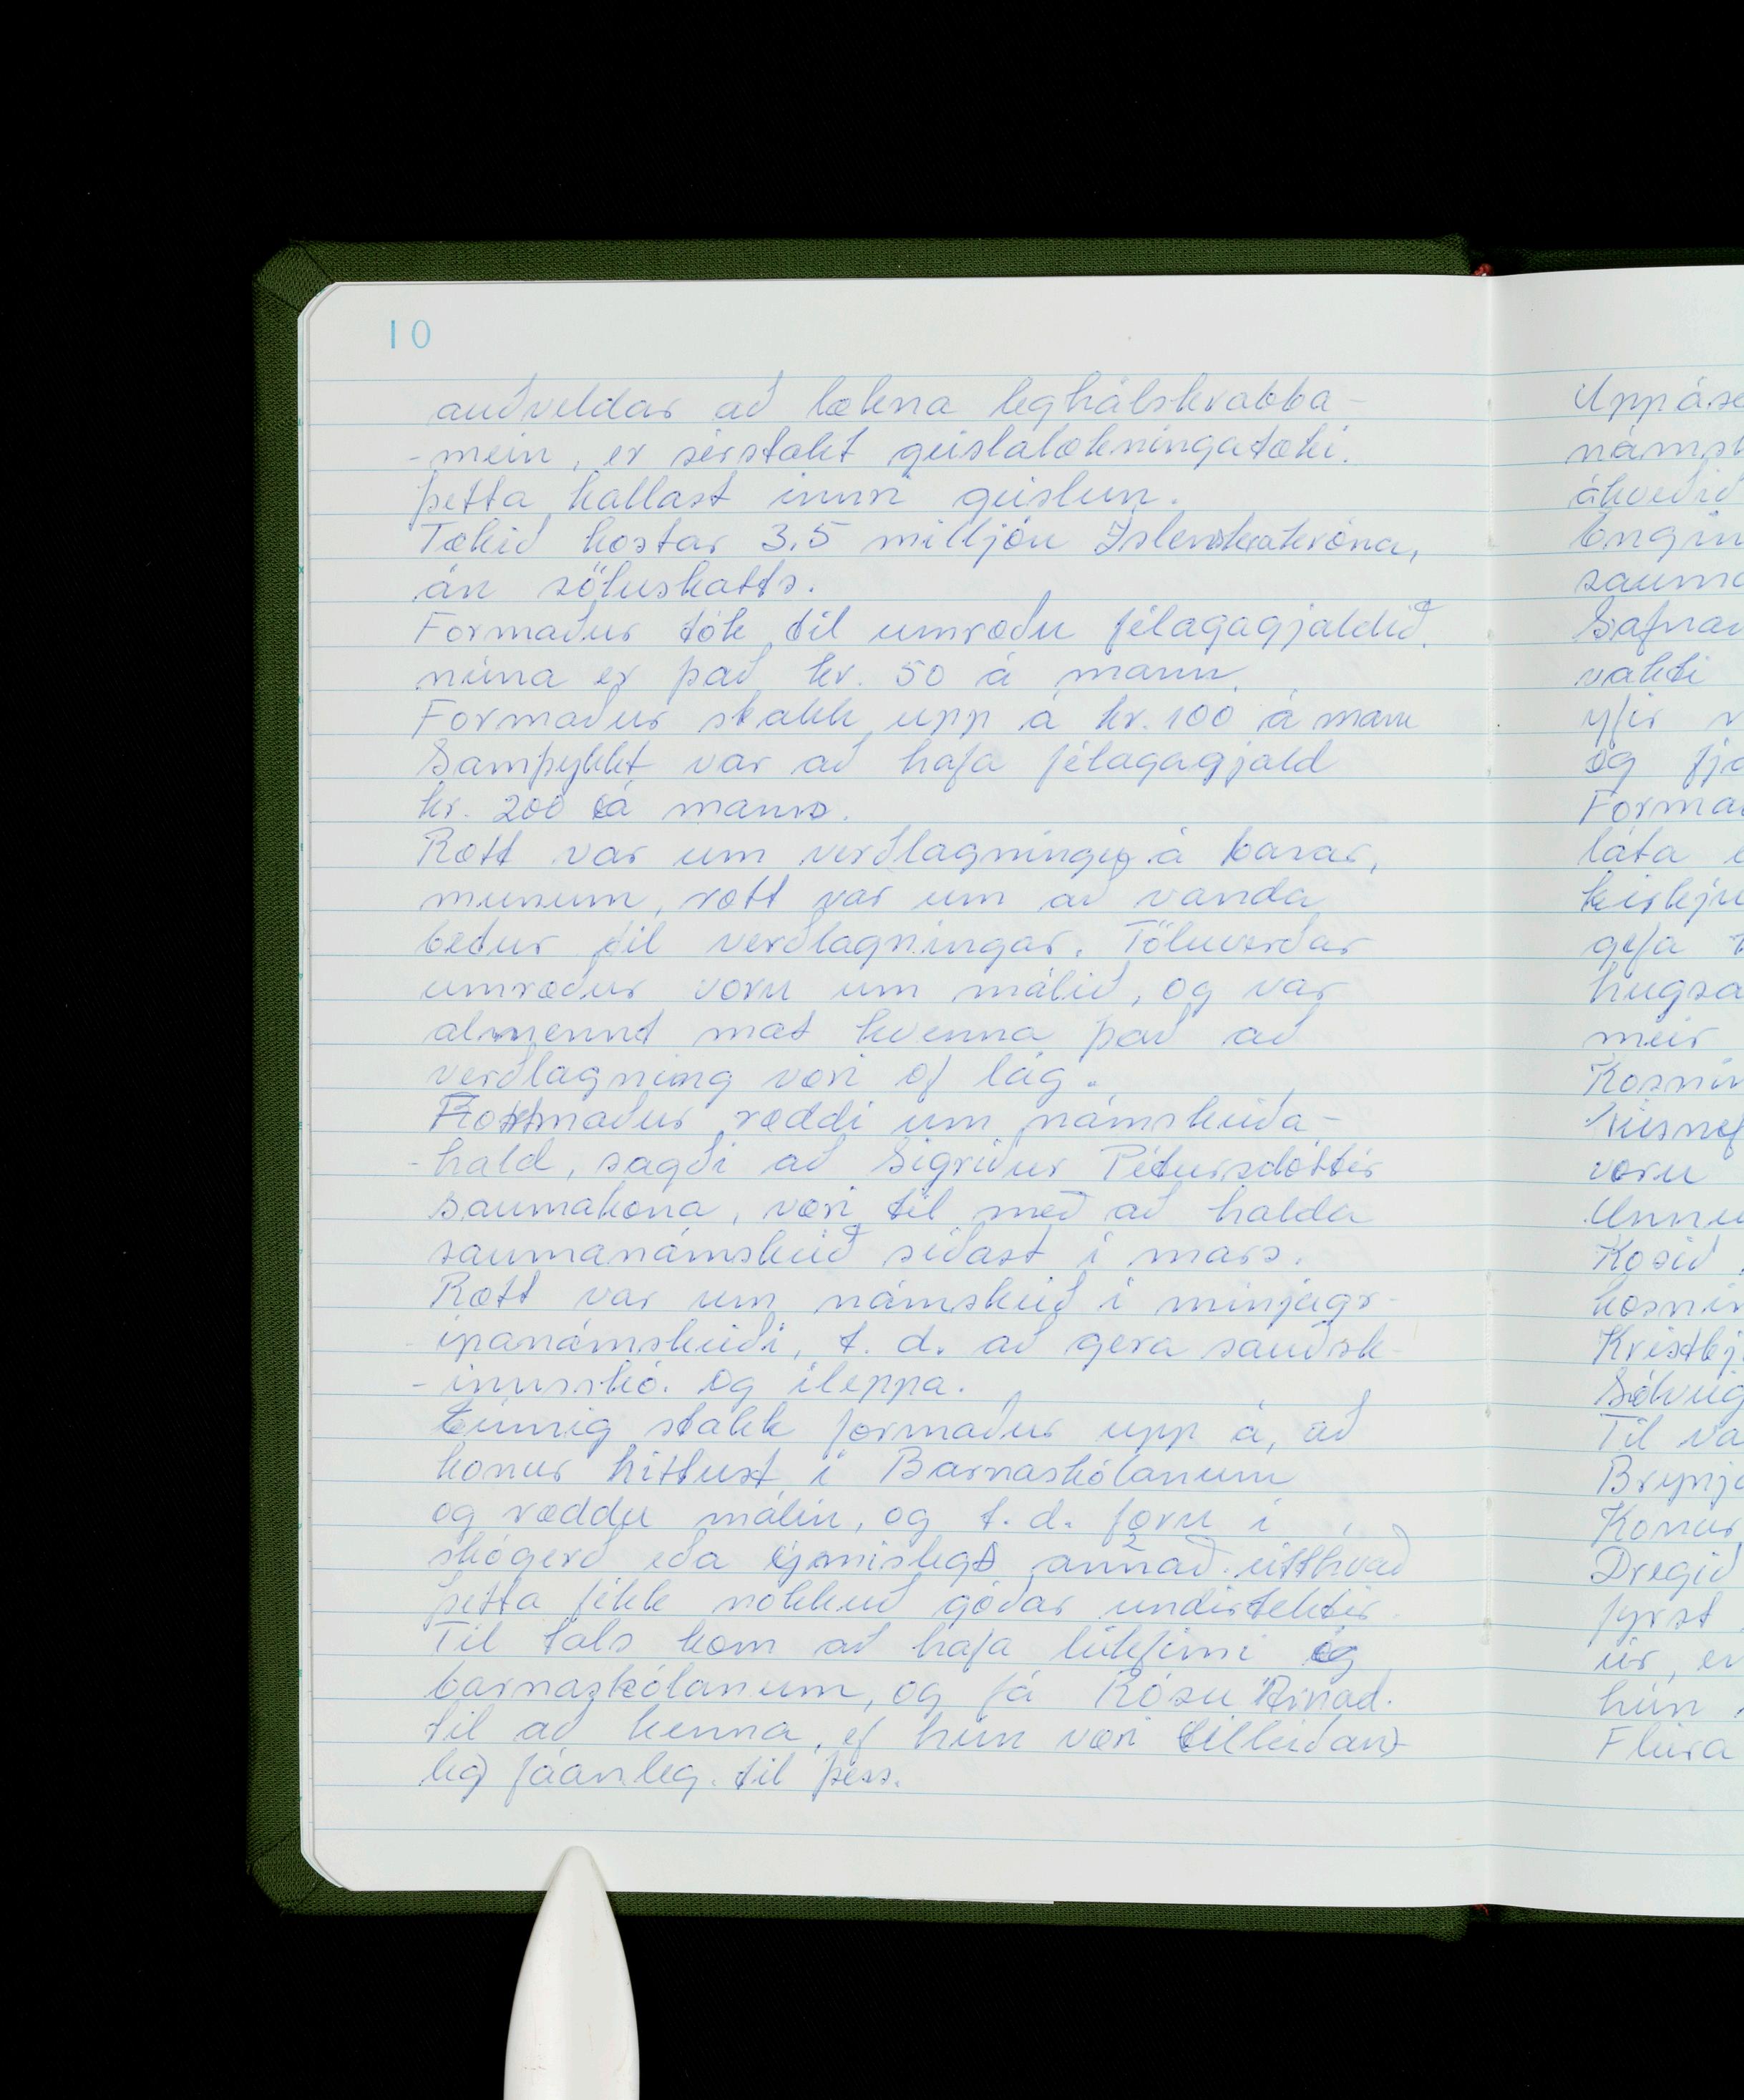 10
auðveldar að lækna leghálskrabba-
-mein, er sérstakt geislalækningatæki.
þetta kallast innri geislun.
Tækið kostar 3,5 milljón Íslenskrakróna,
án söluskatts.
Formaður tók til umræðu félagagjaldið,
núna er það kr. 50 á mann.
Formaður stakk upp á kr. 100 á mann
Samþykkt var að hafa félagagjald
kr. 200 á mann.
Rætt var um verðlagningu á basar,
munum, rætt var um að vanda
betur til verðlagningar. Töluverðar
umræður voru um málið, og var
almennt mat kvenna það að
verðlagning væri of lág.
Formaður ræddi um námskeiða-
-hald, sagði að Sigríður Pétursdóttir
saumakona, væri til með að halda
saumanámskeið síðast í mars.
Rætt var um námskeið í minjagr-
-ipanámskeiði, t.d. að gera sauðsk-
-innsskó. og íleppa.
Einnig stakk formaður upp á, að
konur hittust í Barnaskólanum
og ræddu málin, og t.d. færu í
skógerð eða ýmislegt annað útthvað
þetta fékk nokkuð góðar undirtektir.
Til tals kom að hafa leikfimi í
barnaskólanum, og fá Rósu
til að kenna, ef hún væri (tilleiðan-
leg) fáanleg. til þess.
Uppáse
námsk
ákveðið
Engin
sauma
Safnað
vakti
yfir
og fjö
Forma
láta
kirkju
gefa
hugsa
meir
Kosnin
voru
Unnu
Kosið
kosnin
Kristbj
Sólveig
Til va
Brynj
Konur
Dregið
fyrst
úr, en
hún
Flúra